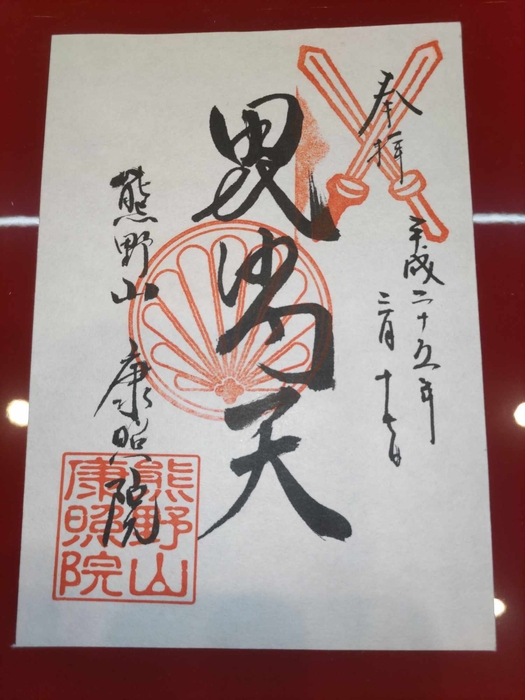 奉拝
平成二十五年
毘沙門天
熊野山 康照院
熊野山
康照院